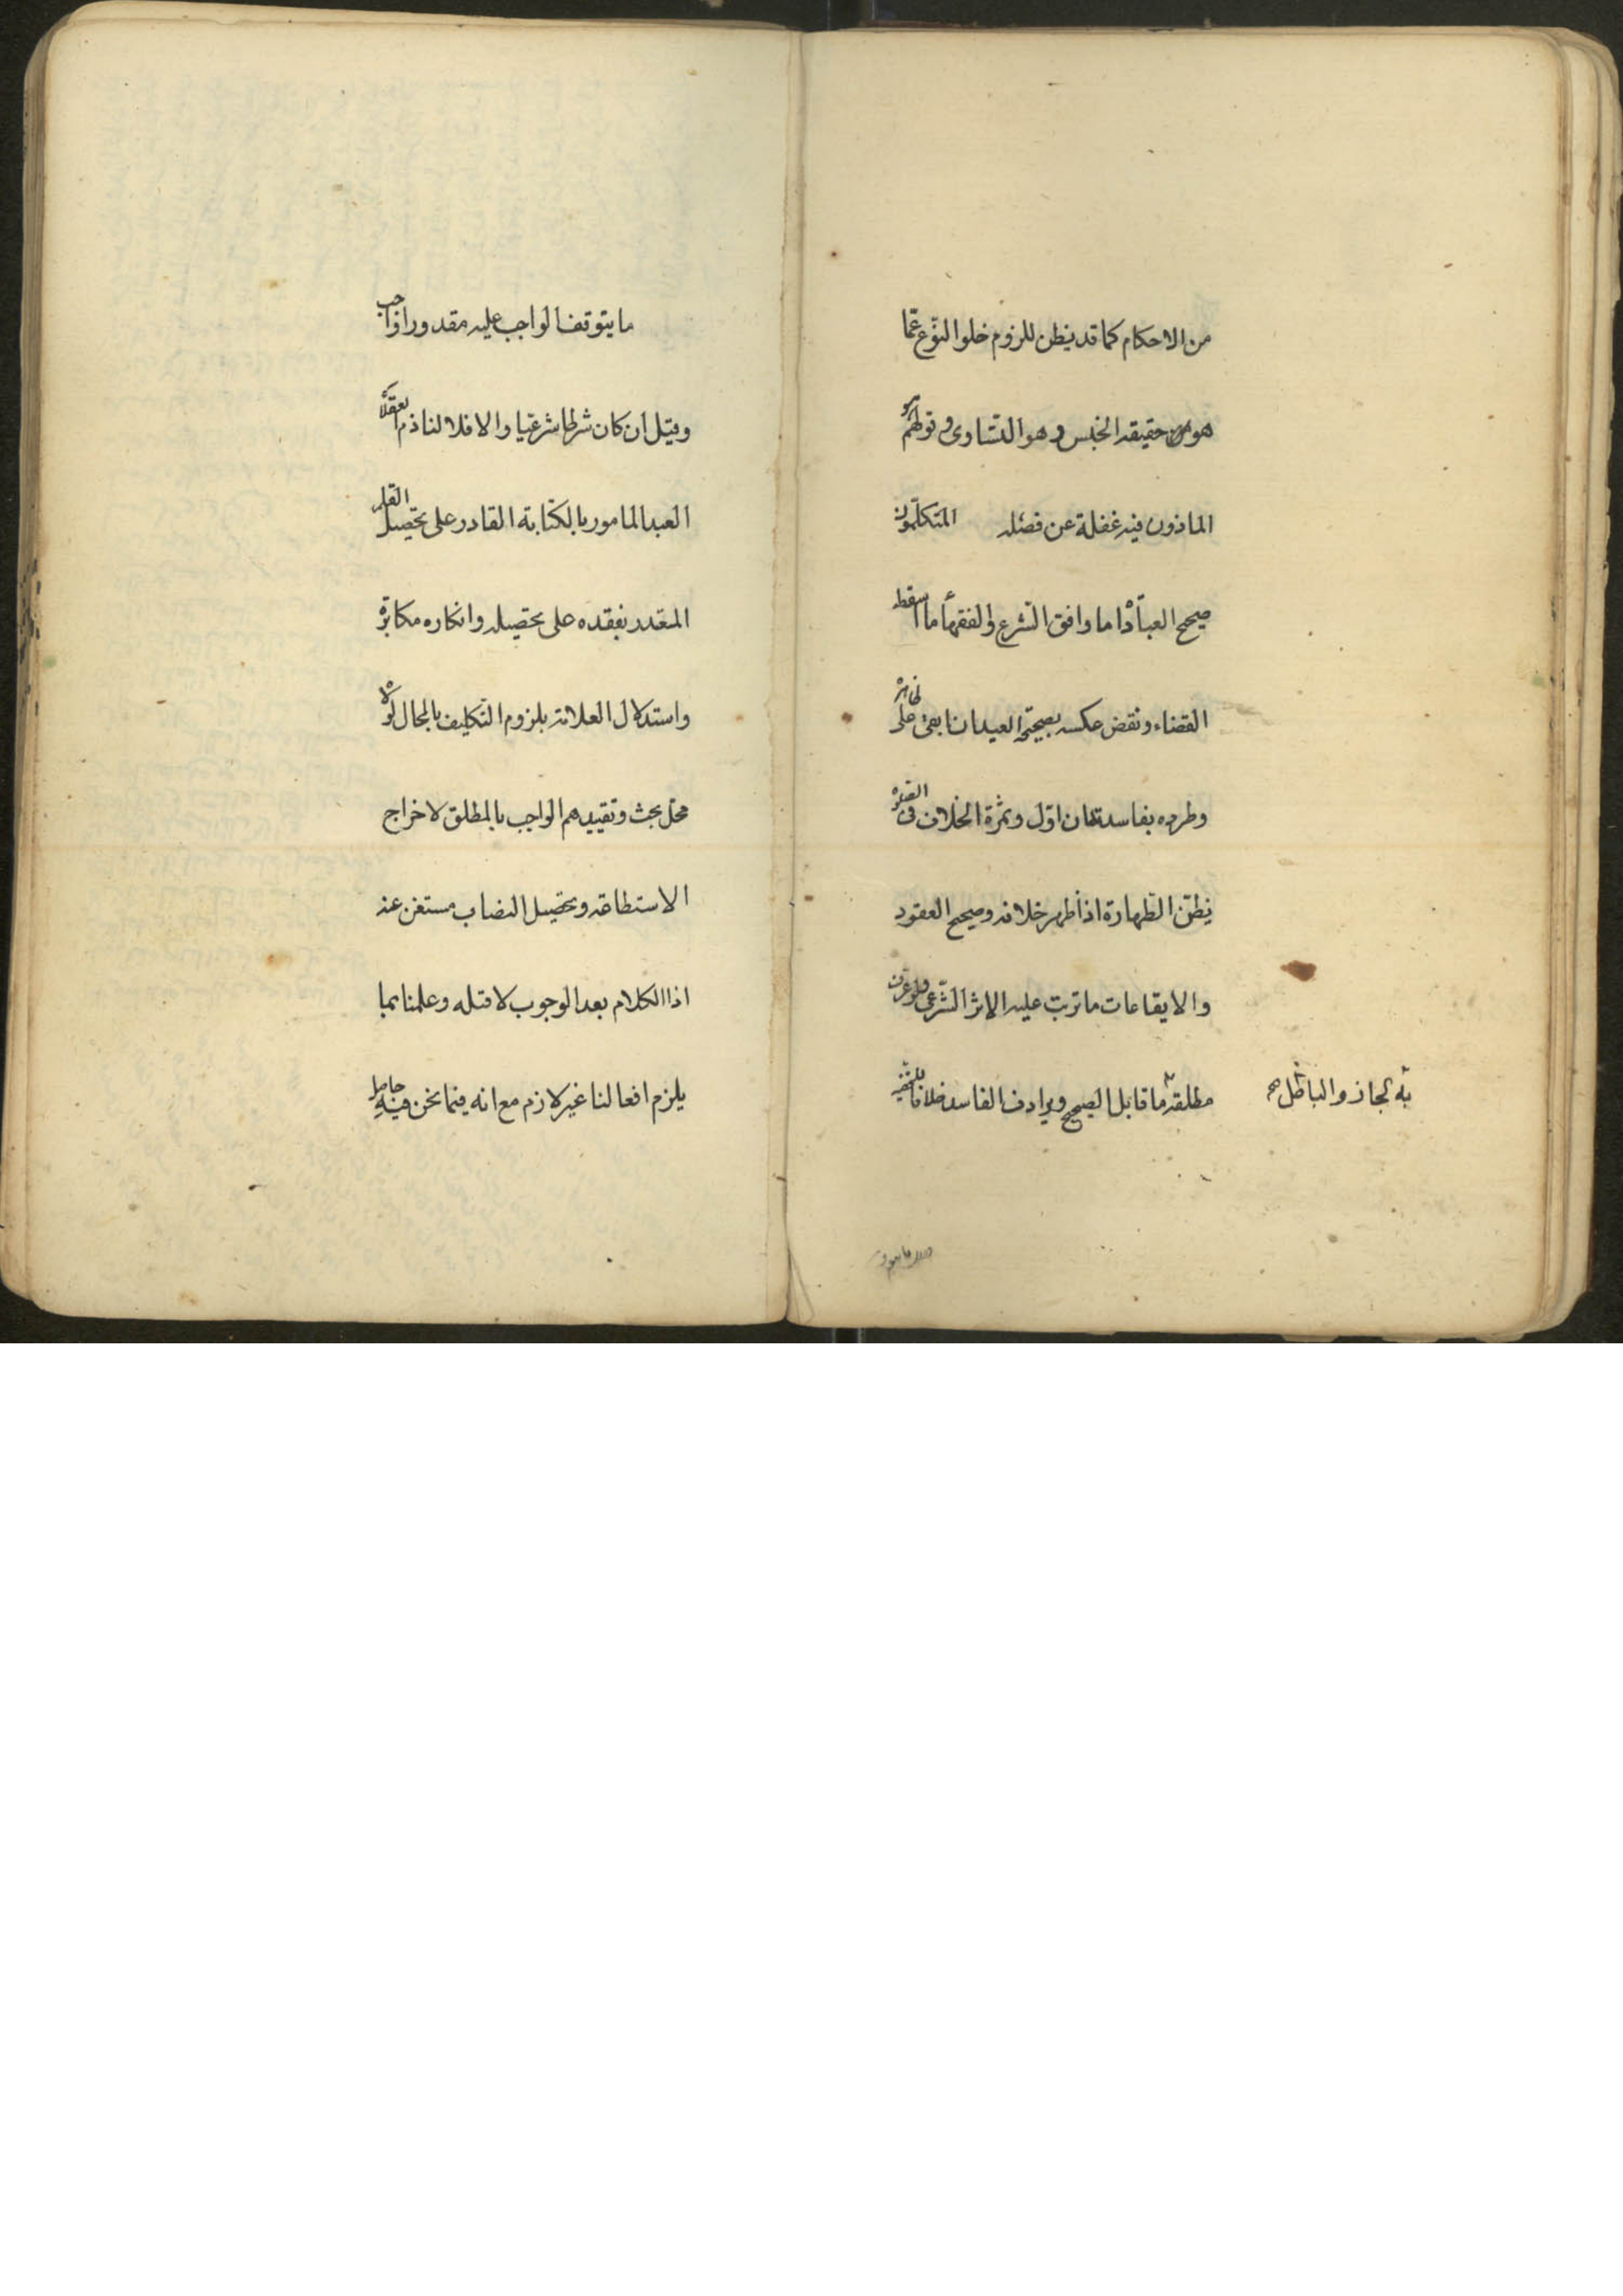 من الاحكام كما قد يظن للزوم خلو النوع عمّا
هو من حقيقة الجنس وهو التساوى وتولهم هو
الماذون فيه غفلة عن فصله المتكلمون
صحيح العبادة ما وافق الشرع والفقهاء ما اسقط
القضاء ونقض عكسه بصحيحة العيد ان ابقى على ظاهره
وطرده بفاسدتها ان اوّل وثمرة الخلاف فى الصلوة
بظن الطهارة اذا ظهر خلافه وصحيح العقود
والايقاعات ما ترتب عليه الاثر الشرعى فلو عرفت
مطلقة ما قابل الصحيح ويرادف الفاسد خلافا للحنفية
به لجاز والباطل صح
ما يتوقف الواجب عليه مقدورا واجب
وقيل ان كان شرطا شرعيا والا فلا لنا ذم العقلاء
العبد المامور بالكتابة القادر على تحصيل القلم
المعتذر بفقده على تحصيله وانكاره مكابرة
واستدلال العلامة بلزوم التكليف بالمحال لولاه
محل بحث وتقييدهم الواجب بالمطلق لاخراج
الاستطاعة وتحصيل النصاب مستغن عنه
اذ الكلام بعد الوجوب لا قبله وعلمنا بما
يلزم افعالنا غير لازم مع انه فيما نحن فيه حاصل